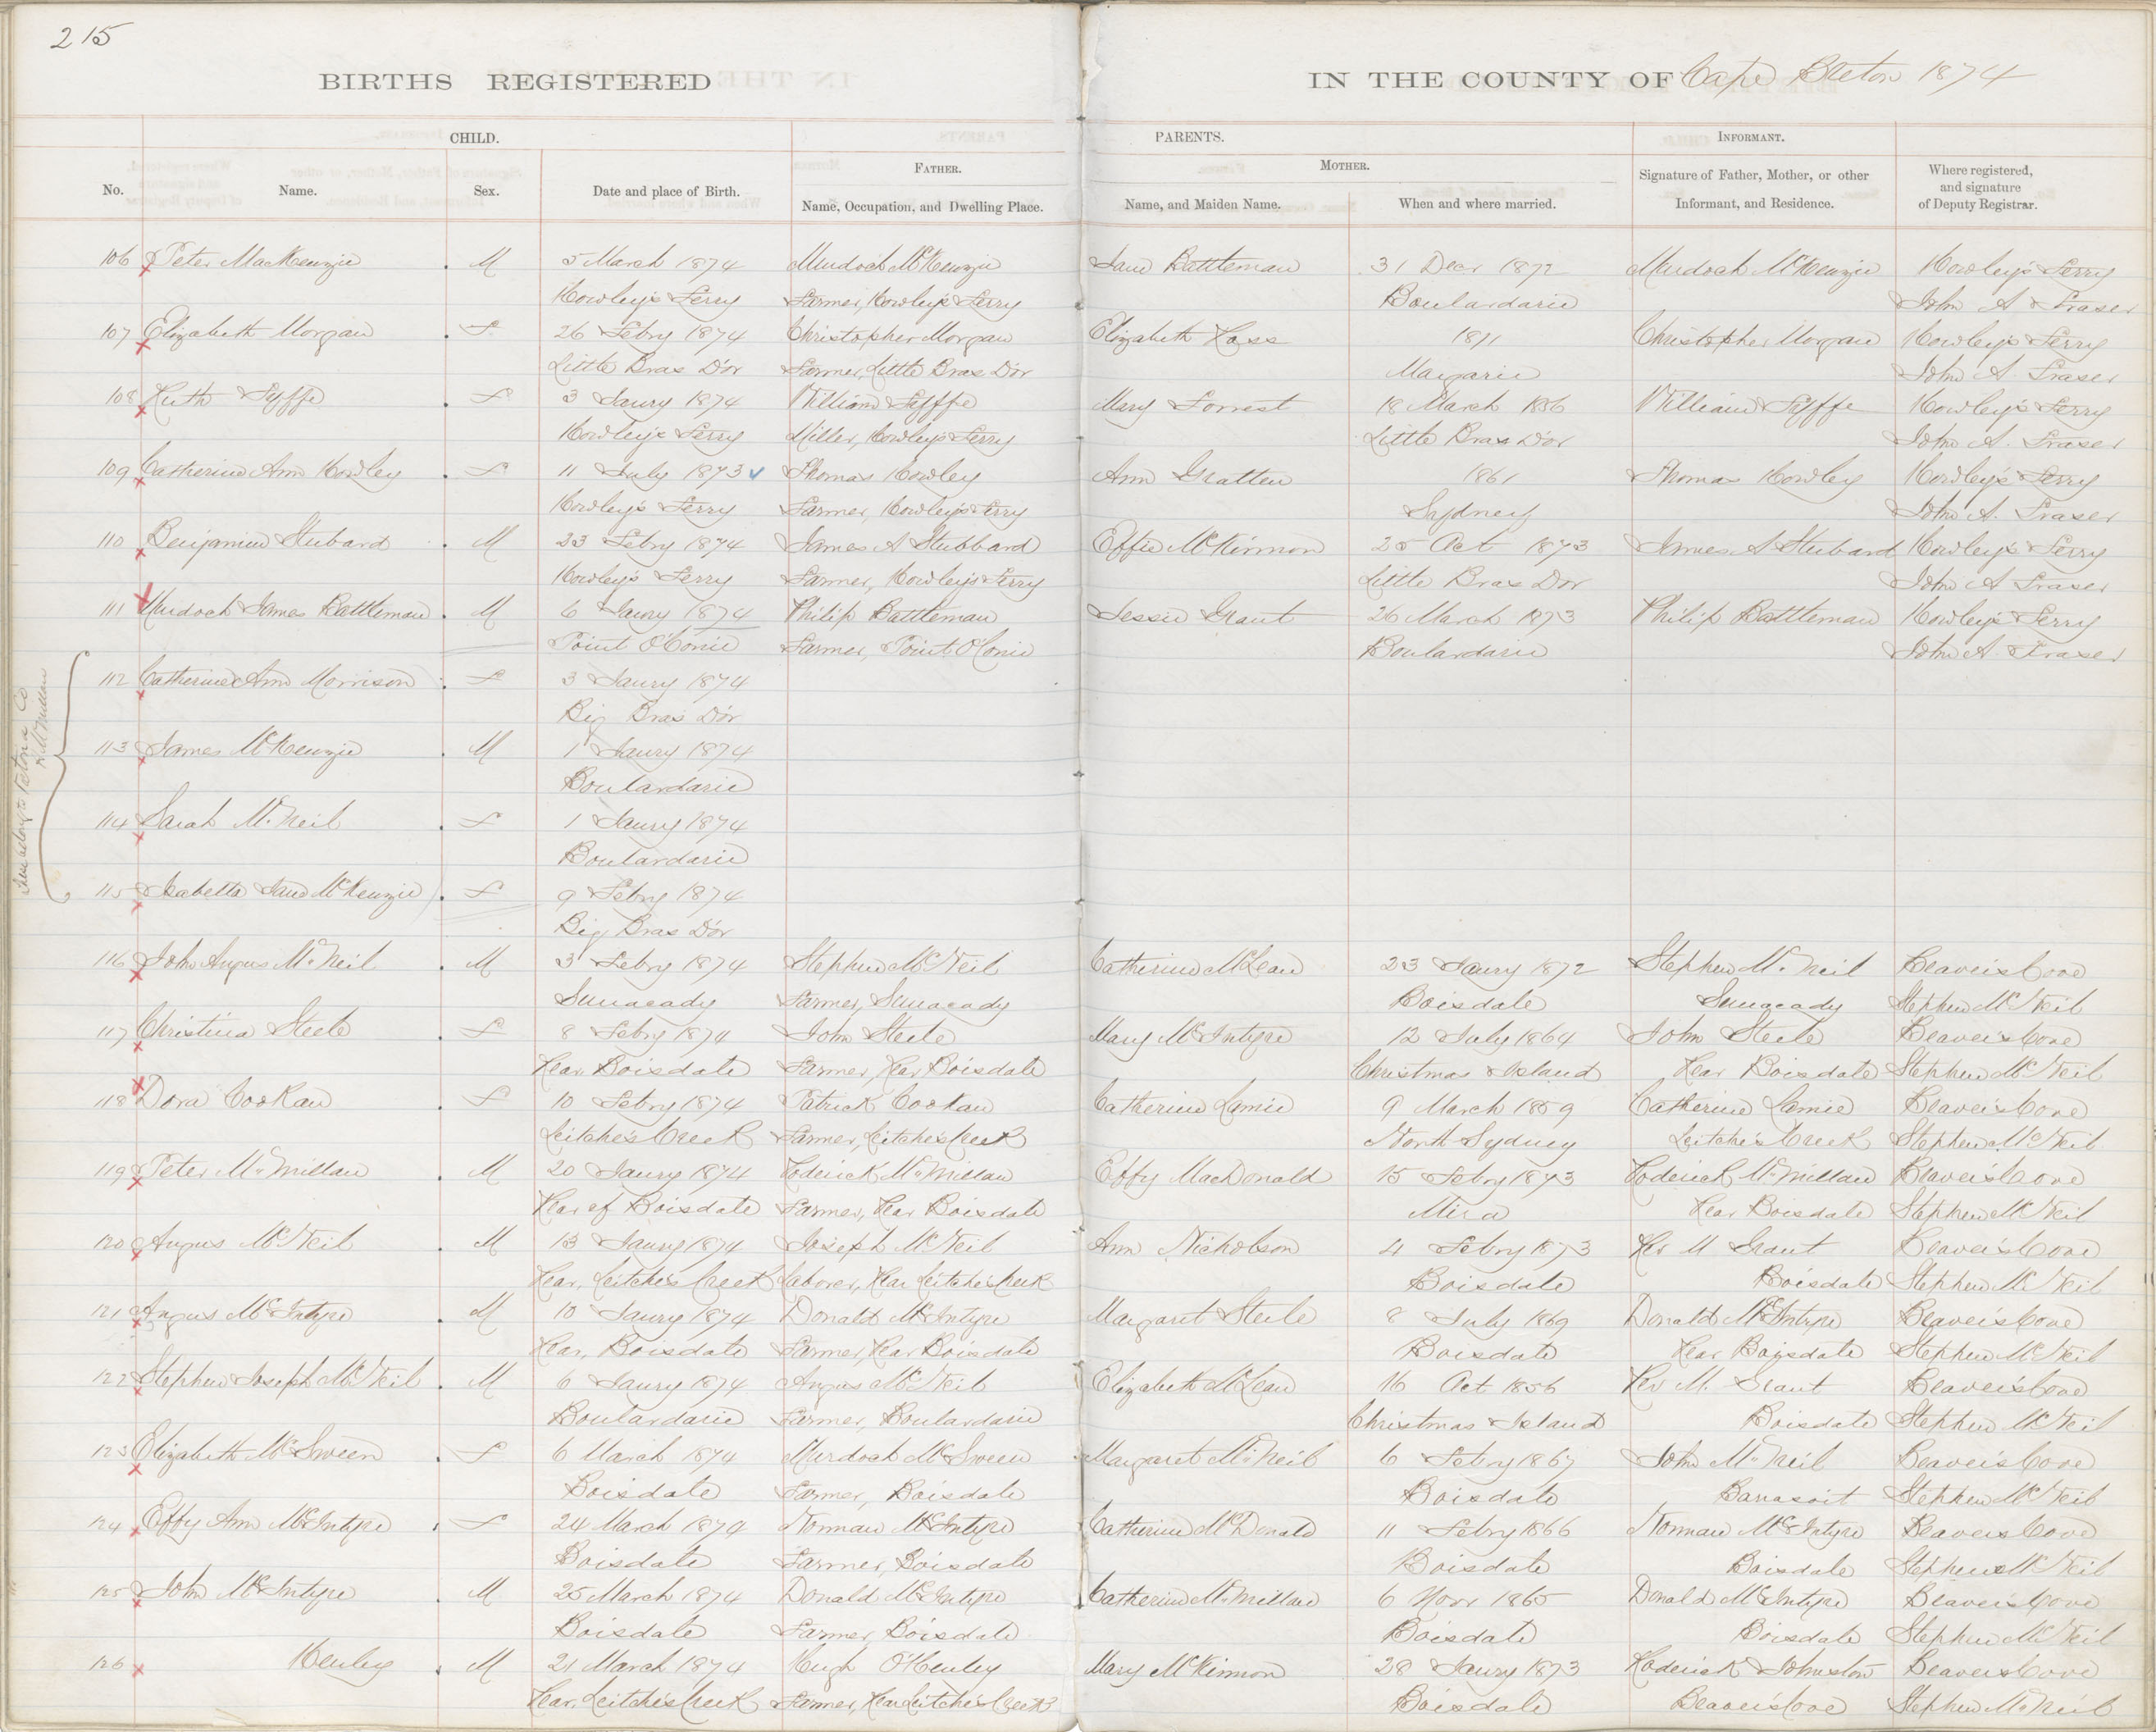 215
BIRTHS REGISTERED IN THE COUNTY OF Cape Breton 1874
CHILD. PARENTS. INFORMANT.
FATHER. MOTHER.
No. Name. Sex. Date and place of Birth. Name, Occupation, and Dwelling Place. Name, and Maiden Name. When and where married. Signature of Father, Mother, or other Informant, and Residence. Where registered, and signature of Deputy Registrar.
106 Peter MacKenzie M 5 March 1874 Murdoch McKenzie Jane Battleman 31 Decr 1872 Murdoch McKenzie Howley's Ferry
Howley's Ferry Farmer, Howley's Ferry Boulardarie John A Fraser
107 Elizabeth Morgan F 26 Febry 1874 Christopher Morgan Elizabeth Ross 1871 Christopher Morgan Howley's Ferry
Little Bras D'or Farmer, Little Bras D'or Margarie John A Fraser
108 Ruth Fyffe F 3 Jaury 1874 William Fyffe Mary Forrest 18 March 1856 William Fyffe Howley's Ferry
Howley's Ferry Miller, Howley's Ferry Little Bras D'or John A. Fraser
109 Catherine Ann Howley F 11 July 1873 Thomas Howley Ann Gratten 1861 Thomas Howley Howley's Ferry
Howley's Ferry Farmer, Howley's Ferry Sydney John A. Fraser
110 Benjamin Stubard M 23 Febry 1874 James A Stubbard Effie McKinnon 25 Oct 1873 James A Stubard Howley's Ferry
Howley's Ferry Farmer, Howley's Ferry Little Bras Dor John A Fraser
111 Murdoch James Battleman M 6 Jaury 1874 Philip Battleman Jessie Grant 26 March 1873 Philip Battleman Howley's Ferry
Point O'Conie Farmer, Point O'Conie Boulardarie John A Fraser
112 Catherine Ann Morrison F 3 Jaury 1874
Big Bras D'or
113 James McKenzie M 1 Jaury 1874
Boulardarie
114 Sarah McNeil F 1 Jaury 1874
Boulardarie
115 Isabella Jane McKenzie F 9 Febry 1874
Big Bras D'or
These belong to Victoria Co
116 John Angus McNeil M 3 Febry 1874 Stephen McNeil Catherine McLean 23 Jaury 1872 Stephen McNeil Beaver's Cove
Sunacady Farmer, Sunacady Boisdale Sunacady Stephen McNeil
117 Christina Steele F 8 Febry 1874 John Steele Mary McIntyre 12 July 1864 John Steele Beaver's Cove
Rear Boisdale Farmer, Rear Boisdale Christmas Island Rear Boisdale Stephen McNeil
118 Dora Cookan F 10 Febry 1874 Patrick Cookan Catherine Lamie 9 March 1859 Catherine Lamie Beaver's Cove
Leitche's Creek Farmer, Leitche's Creek North Sydney Leitche's Creek Stephen McNeil
119 Peter McMillan M 20 Jaury 1874 Roderick McMillan Effy MacDonald 15 Febry 1873 Roderick McMillan Beaver's Cove
Rear of Boisdale Farmer, Rear Boisdale Mira Rear Boisdale Stephen McNeil
120 Angus McNeil M 13 Jaury 1874 Joseph McNeil Ann Nicholson 4 Febry 1873 Rev M Grant Beaver's Cove
Rear, Leitche's Creek Laborer, Rear Leitche's Creek Boisdale Boisdale Stephen McNeil
121 Angus McIntyre M 10 Jaury 1874 Donald McIntyre Margaret Steele 8 July 1869 Donald McIntyre Beaver's Cove
Rear, Boisdale Farmer, Rear Boisdale Boisdale Rear Boisdale Stephen McNeil
122 Stephen Joseph McNeil M 6 Jaury 1874 Angus McNeil Elizabeth McLean 16 Oct 1856 Rev M. Grant Beaver's Cove
Boulardarie Farmer, Boulardarie Christmas Island Boisdale Stephen McNeil
123 Elizabeth McSween F 6 March 1874 Murdoch McSween Margaret McNeil 6 Febry 1867 John McNeil Beaver's Cove
Boisdale Farmer, Boisdale Boisdale Barrasoit Stephen McNeil
124 Effy Ann McIntyre F 24 March 1874 Norman McIntyre Catherine McDonald 11 Febry 1866 Norman McIntyre Beaver's Cove
Boisdale Farmer, Boisdale Boisdale Boisdale Stephen McNeil
125 John McIntyre M 25 March 1874 Donald McIntyre Catherine McMillan 6 Novr 1865 Donald McIntyre Beaver's Cove
Boisdale Farmer, Boisdale Boisdale Boisdale Stephen McNeil
126 Henley M 21 March 1874 Hugh O'Henley Mary McKinnon 28 Jaury 1873 Roderick Johnston Beaver's Cove
Rear, Leitche's Creek Farmer, Rear Leitche's Creek Boisdale Beaver's Cove Stephen McNeil